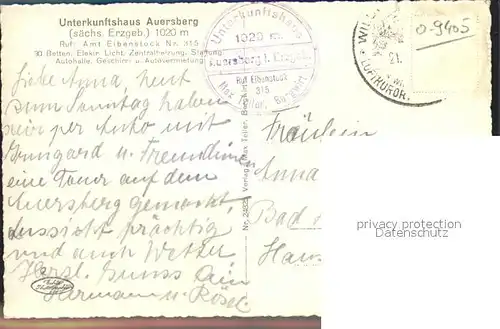 Unterkunftshaus Auersberg
(sächs. Erzgeb.) 1020 m
Ruf: Amt Eibenstock Nr. 315
30 Betten, Elektr. Licht, Zentralheizung, Stallung
Autohalle, Geschirr- u. Autovermietung
Unterkunftshaus
1020 m.
Auersberg i. Erzgeb.
Ruf Eibenstock
315
Max Teller, Bergwirt
WIL
21.
LUFTKUROR
0-9405
Liebe Anna, heut
zum Sonntag haben
wir per Auto mit
Irmgard u. Freundinnen
eine Tour auf dem
Auersberg gemacht.
Aussicht prächtig
und auch Wetter.
Herzl. Gruss
Hermann u. Rösel
Nr. 2482 Verlag Max Teller,
Fräulein
Anna
Bad
Haus
privacy protection
Datenschutz